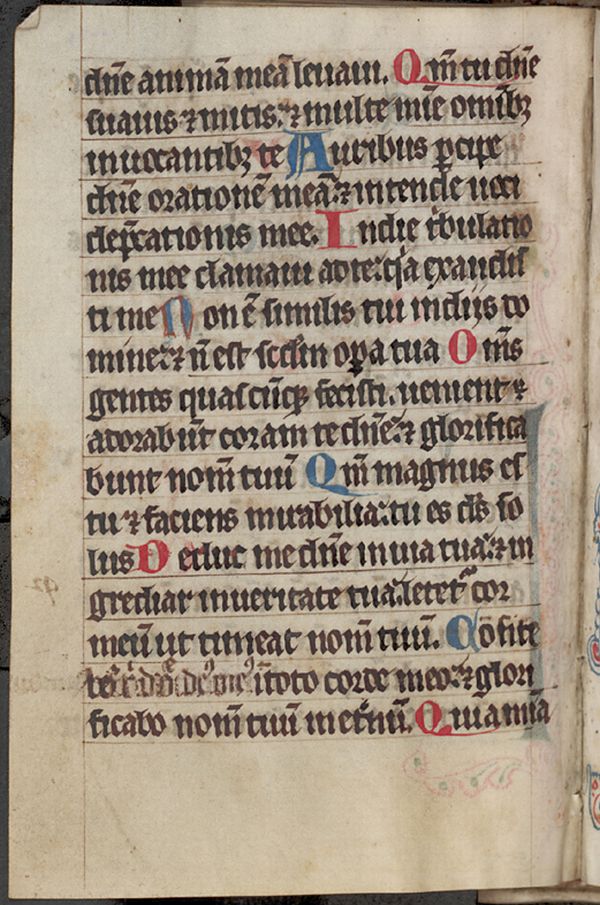 dñe animã meã leuaui. Qm̃ tu dñe
suauis ⁊ mitis: ⁊ multe mĩe omĩbꝫ
inuocantibꝫ te Auribus ꝑcipe
dñe orationẽ meã: ⁊ intende uoci
dep̃cationis mee. In die t̃bulatio
nis mee clamaui ad te: q̃a exaudis
ti me Non ẽ similis tui in dijs do
mine: ⁊ ñ est scd̃m oꝑa tua Om̃s
gentes quascũqꝫ fecisti. uenient ⁊
adorabũt coram te dñe: ⁊ glorifica
bunt nom̃ tuũ Qm̃ magnus es
tu ⁊ faciens mirabilia: tu es ds̃ so
lus Deduc me dñe in uia tua: ⁊ in
grediar in ueritate tua: letet᷑ cor
meũ ut timeat nom̃ tuũ. Cõfite
ĩ toto corde meo: ⁊ glori
ficabo nom̃ tuũ in et̃nũ. Quia mĩa